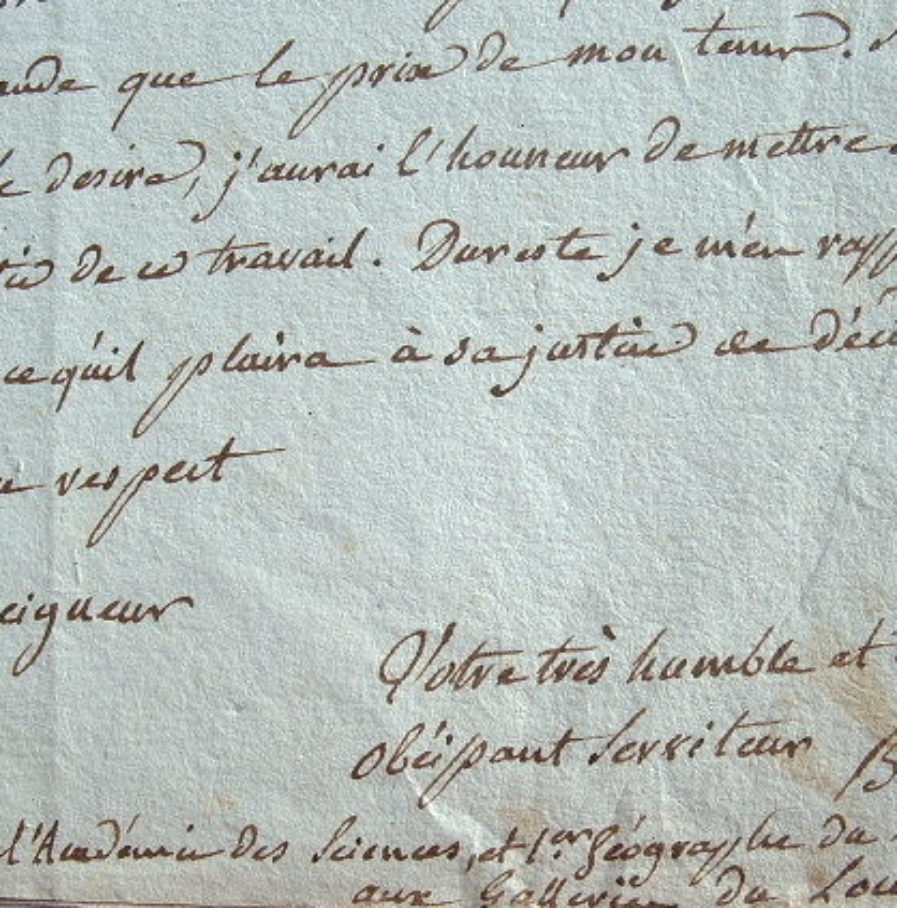 ande que le prix de mon tems.
le desire, j'aurai l'honneur de mettre
tie de ce travail. Dureste je m'en rapp
ce qu'il plaira à sa justice de déci
respect
eigneur
Votre très humble et
obéissant Serviteur B
l'Académie des Sciences, et 1er géographe du
aux Galleries du Lou